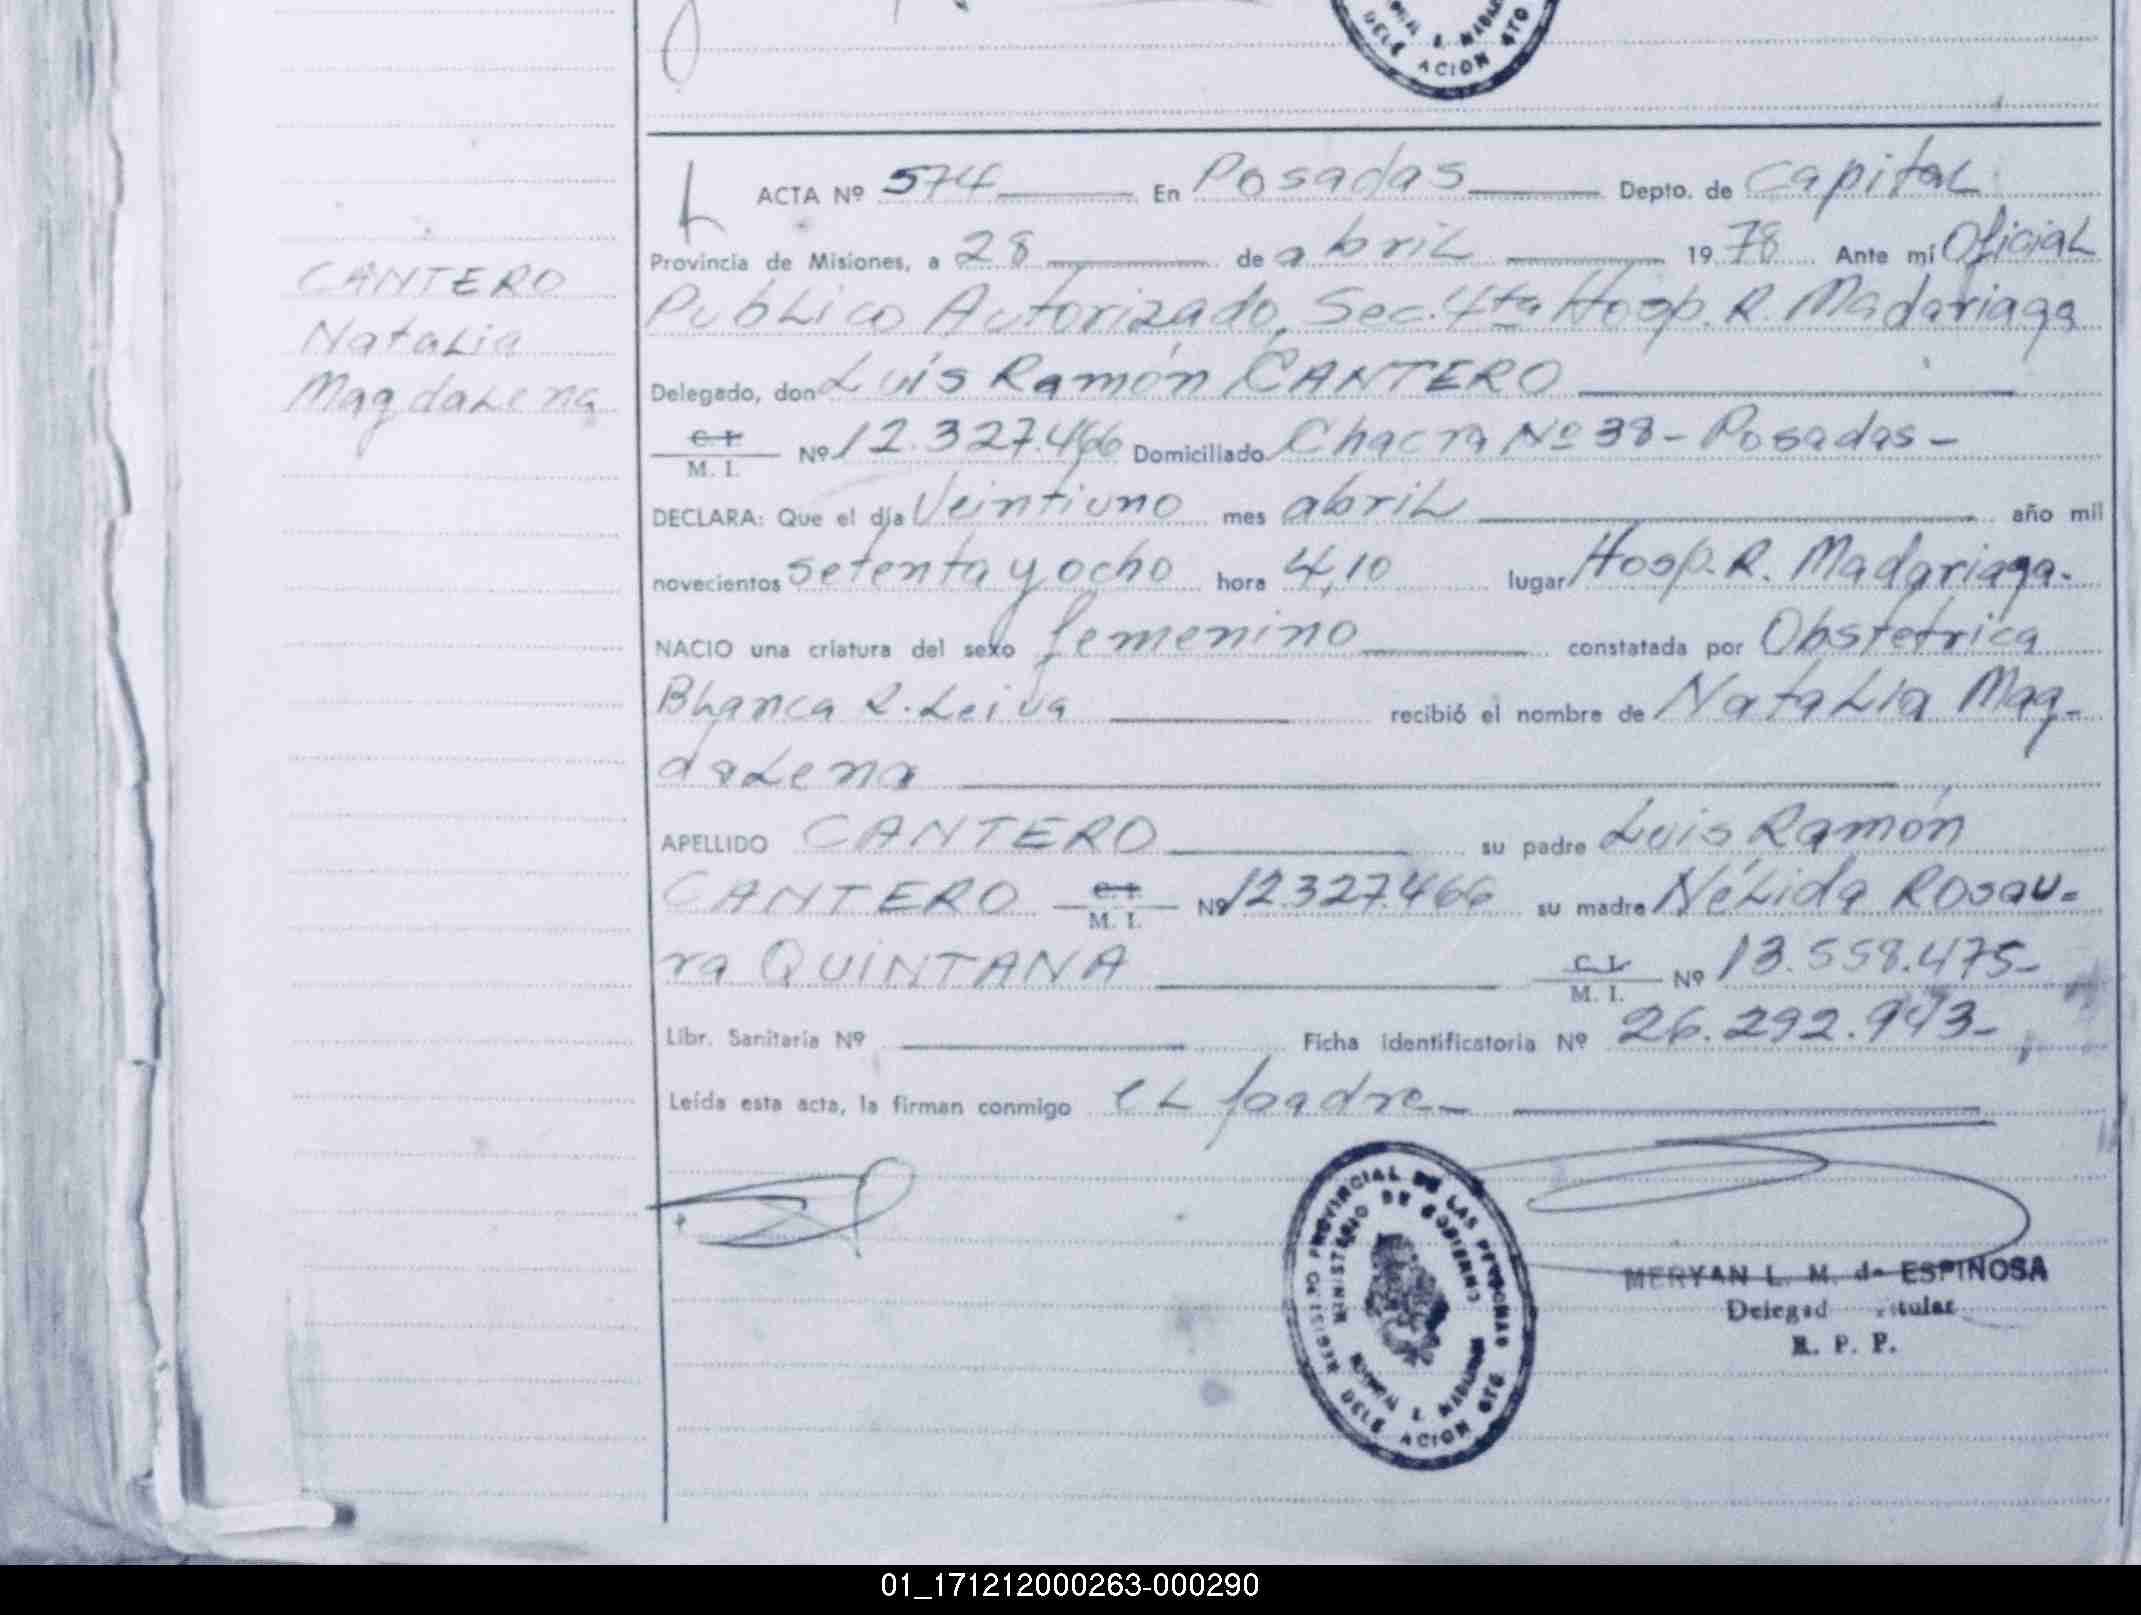 ACTA Nº 574 En Posadas Depto. de Capital
Provincia de Misiones, a 28 de abril 1978 Ante mí Oficial
CANTERO
Publico Autorizado, Sec. 4ta Hosp. R. Madariaga
Natalia
Delegado, don Luis Ramón CANTERO
Magdalena
C. I. M. I. Nº 12.327.466 Domiciliado Chacra Nº 38 - Posadas -
DECLARA: Que el día Veintiuno mes abril año mil
novecientos setenta y ocho hora 4,10 lugar Hosp. R. Madariaga.
NACIO una criatura del sexo femenino constatada por Obstetrica
Blanca R. Leiva recibió el nombre de Natalia Mag-
dalena
APELLIDO CANTERO su padre Luis Ramón
CANTERO C. I. M. I. Nº 12.327.466 su madre Nélida Rosau-
ra QUINTANA C. I. M. I. Nº 13.558.475-
Libr. Sanitaria Nº Ficha identificatoria Nº 26.292.993-
Leída esta acta, la firman conmigo el padre-
REGISTRO PROVINCIAL DE LAS PERSONAS
MINISTERIO DE GOBIERNO
DELE ACION 4TO
MERYAN L. M. de ESPINOSA
Delegad titular
R. P. P.
01_171212000263-000290